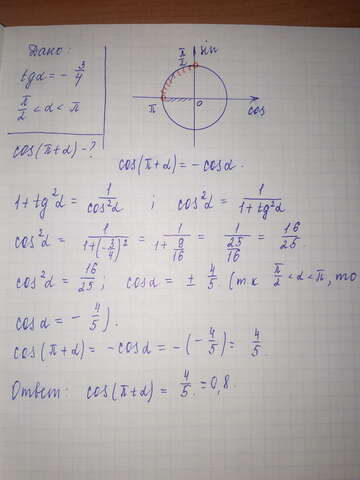 Дано:
tgα = - 3/4
π/2 < α < π
cos(π+α) - ?
sin
π/2
π
0
cos
cos(π+α) = -cosα.
1 + tg²α = 1/cos²α ; cos²α = 1/(1+tg²α)
cos²α = 1/(1+(-3/4)²) = 1/(1+9/16) = 1/(25/16) = 16/25.
cos²α = 16/25; cosα = ± 4/5. (т.к π/2 < α < π, то
cosα = - 4/5).
cos(π+α) = -cosα = -(-4/5) = 4/5.
Ответ: cos(π+α) = 4/5. = 0,8.